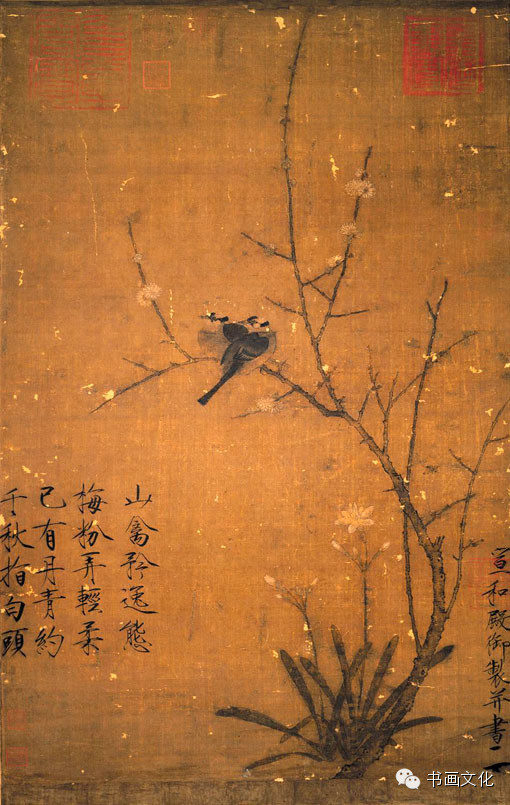 宣和殿御製并書
山禽矜逸態
梅粉弄輕柔
已有丹青約
千秋指白頭
书画文化